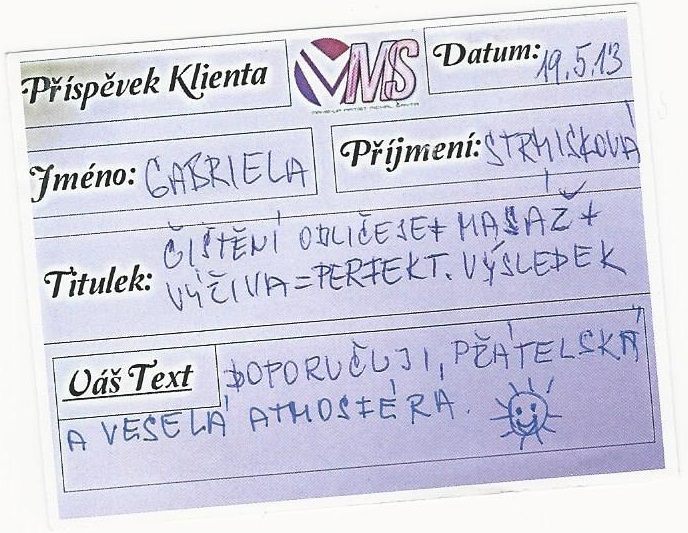 Příspěvek Klienta
VMS
MAKE-UP ARTIST MICHAL
Datum: 19.5.13
Jméno: GABRIELA
Příjmení: STRMISKOVÁ
Titulek: ČIŠTĚNÍ OBLIČEJE + MASÁŽ +
VÝŽIVA = PERFEKT. VÝSLEDEK
Váš Text DOPORUČUJI, PŘÁTELSKÁ
A VESELÁ ATMOSFÉRA.